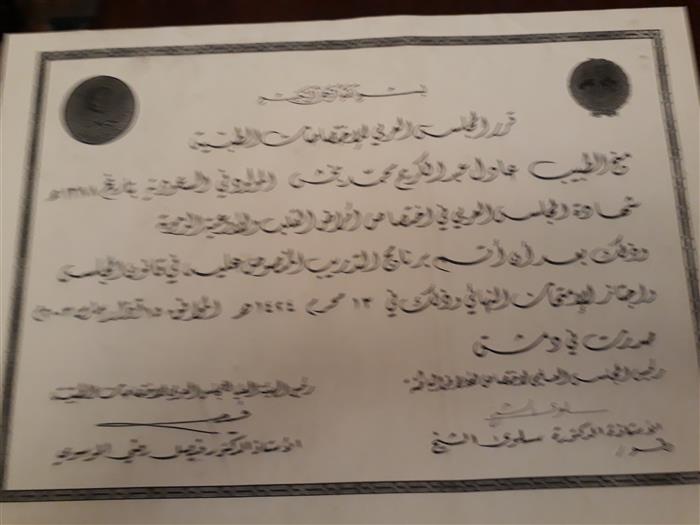 بسم الله الرحمن الرحيم
قرر المجلس العربي للإختصاصات الطبية
منح الطبيب عادل عبد الكريم محمد بخش المولود في السعودية بتاريخ
شهادة المجلس العربي في اختصاص أمراض القلب والأوعية الدموية
وذلك بعد أن أتم برنامج التدريب المنصوص عليه في قانون المجلس
واجتاز الإمتحان النهائي وذلك في ١٣ محرم ١٤٢٤هـ الموافق
صدرت في دمشق
رئيس الهيئة العليا للمجلس العربي للاختصاصات الطبية
الأستاذ الدكتور فيصل رضي الموسوي
رئيس المجلس العلمي لاختصاص
الأستاذة الدكتورة سلوى الشيخ